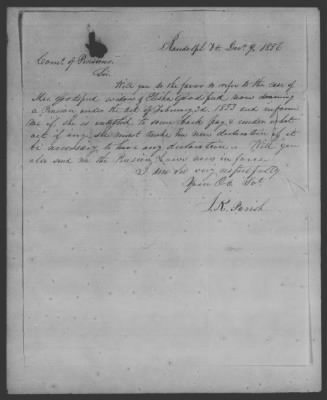 Randolph Vt Dec. 9, 1856
Comr. of Pensions
Sir.
Will you do the favor to refer to the case of
Mrs. Goodspeed widow of Goodspeed, now drawing
a Pension under the Act of February 3d. 1853 and inform
me if she is entitled to some back pay, & under what
act if any, she must make her new declaration if it
be necessary to have any declaration. Will you
also send me the Pension Laws now in force
I am Sir very respectfully
Your Ob. Svt
J. K. Parish